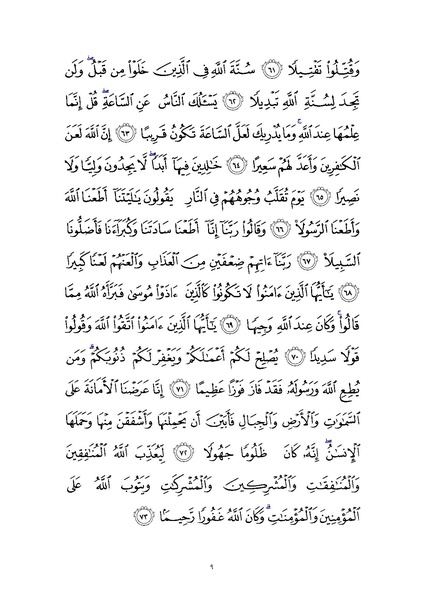 وَقُتِّلُوا۟ تَقْتِيلًا ۝٦١ سُنَّةَ ٱللَّهِ فِى ٱلَّذِينَ خَلَوْا۟ مِن قَبْلُ ۖ وَلَن
تَجِدَ لِسُنَّةِ ٱللَّهِ تَبْدِيلًا ۝٦٢ يَسْـَٔلُكَ ٱلنَّاسُ عَنِ ٱلسَّاعَةِ ۖ قُلْ إِنَّمَا
عِلْمُهَا عِندَ ٱللَّهِ ۚ وَمَا يُدْرِيكَ لَعَلَّ ٱلسَّاعَةَ تَكُونُ قَرِيبًا ۝٦٣ إِنَّ ٱللَّهَ لَعَنَ
ٱلْكَـٰفِرِينَ وَأَعَدَّ لَهُمْ سَعِيرًا ۝٦٤ خَـٰلِدِينَ فِيهَآ أَبَدًا ۖ لَّا يَجِدُونَ وَلِيًّا وَلَا
نَصِيرًا ۝٦٥ يَوْمَ تُقَلَّبُ وُجُوهُهُمْ فِى ٱلنَّارِ يَقُولُونَ يَـٰلَيْتَنَآ أَطَعْنَا ٱللَّهَ
وَأَطَعْنَا ٱلرَّسُولَا۠ ۝٦٦ وَقَالُوا۟ رَبَّنَآ إِنَّآ أَطَعْنَا سَادَتَنَا وَكُبَرَآءَنَا فَأَضَلُّونَا
ٱلسَّبِيلَا۠ ۝٦٧ رَبَّنَآ ءَاتِهِمْ ضِعْفَيْنِ مِنَ ٱلْعَذَابِ وَٱلْعَنْهُمْ لَعْنًا كَبِيرًا
۝٦٨ يَـٰٓأَيُّهَا ٱلَّذِينَ ءَامَنُوا۟ لَا تَكُونُوا۟ كَٱلَّذِينَ ءَاذَوْا۟ مُوسَىٰ فَبَرَّأَهُ ٱللَّهُ مِمَّا
قَالُوا۟ ۚ وَكَانَ عِندَ ٱللَّهِ وَجِيهًا ۝٦٩ يَـٰٓأَيُّهَا ٱلَّذِينَ ءَامَنُوا۟ ٱتَّقُوا۟ ٱللَّهَ وَقُولُوا۟
قَوْلًا سَدِيدًا ۝٧٠ يُصْلِحْ لَكُمْ أَعْمَـٰلَكُمْ وَيَغْفِرْ لَكُمْ ذُنُوبَكُمْ ۗ وَمَن
يُطِعِ ٱللَّهَ وَرَسُولَهُۥ فَقَدْ فَازَ فَوْزًا عَظِيمًا ۝٧١ إِنَّا عَرَضْنَا ٱلْأَمَانَةَ عَلَى
ٱلسَّمَـٰوَٰتِ وَٱلْأَرْضِ وَٱلْجِبَالِ فَأَبَيْنَ أَن يَحْمِلْنَهَا وَأَشْفَقْنَ مِنْهَا وَحَمَلَهَا
ٱلْإِنسَـٰنُ ۖ إِنَّهُۥ كَانَ ظَلُومًا جَهُولًا ۝٧٢ لِّيُعَذِّبَ ٱللَّهُ ٱلْمُنَـٰفِقِينَ
وَٱلْمُنَـٰفِقَـٰتِ وَٱلْمُشْرِكِينَ وَٱلْمُشْرِكَـٰتِ وَيَتُوبَ ٱللَّهُ عَلَى
ٱلْمُؤْمِنِينَ وَٱلْمُؤْمِنَـٰتِ ۗ وَكَانَ ٱللَّهُ غَفُورًا رَّحِيمًا ۝٧٣
٩